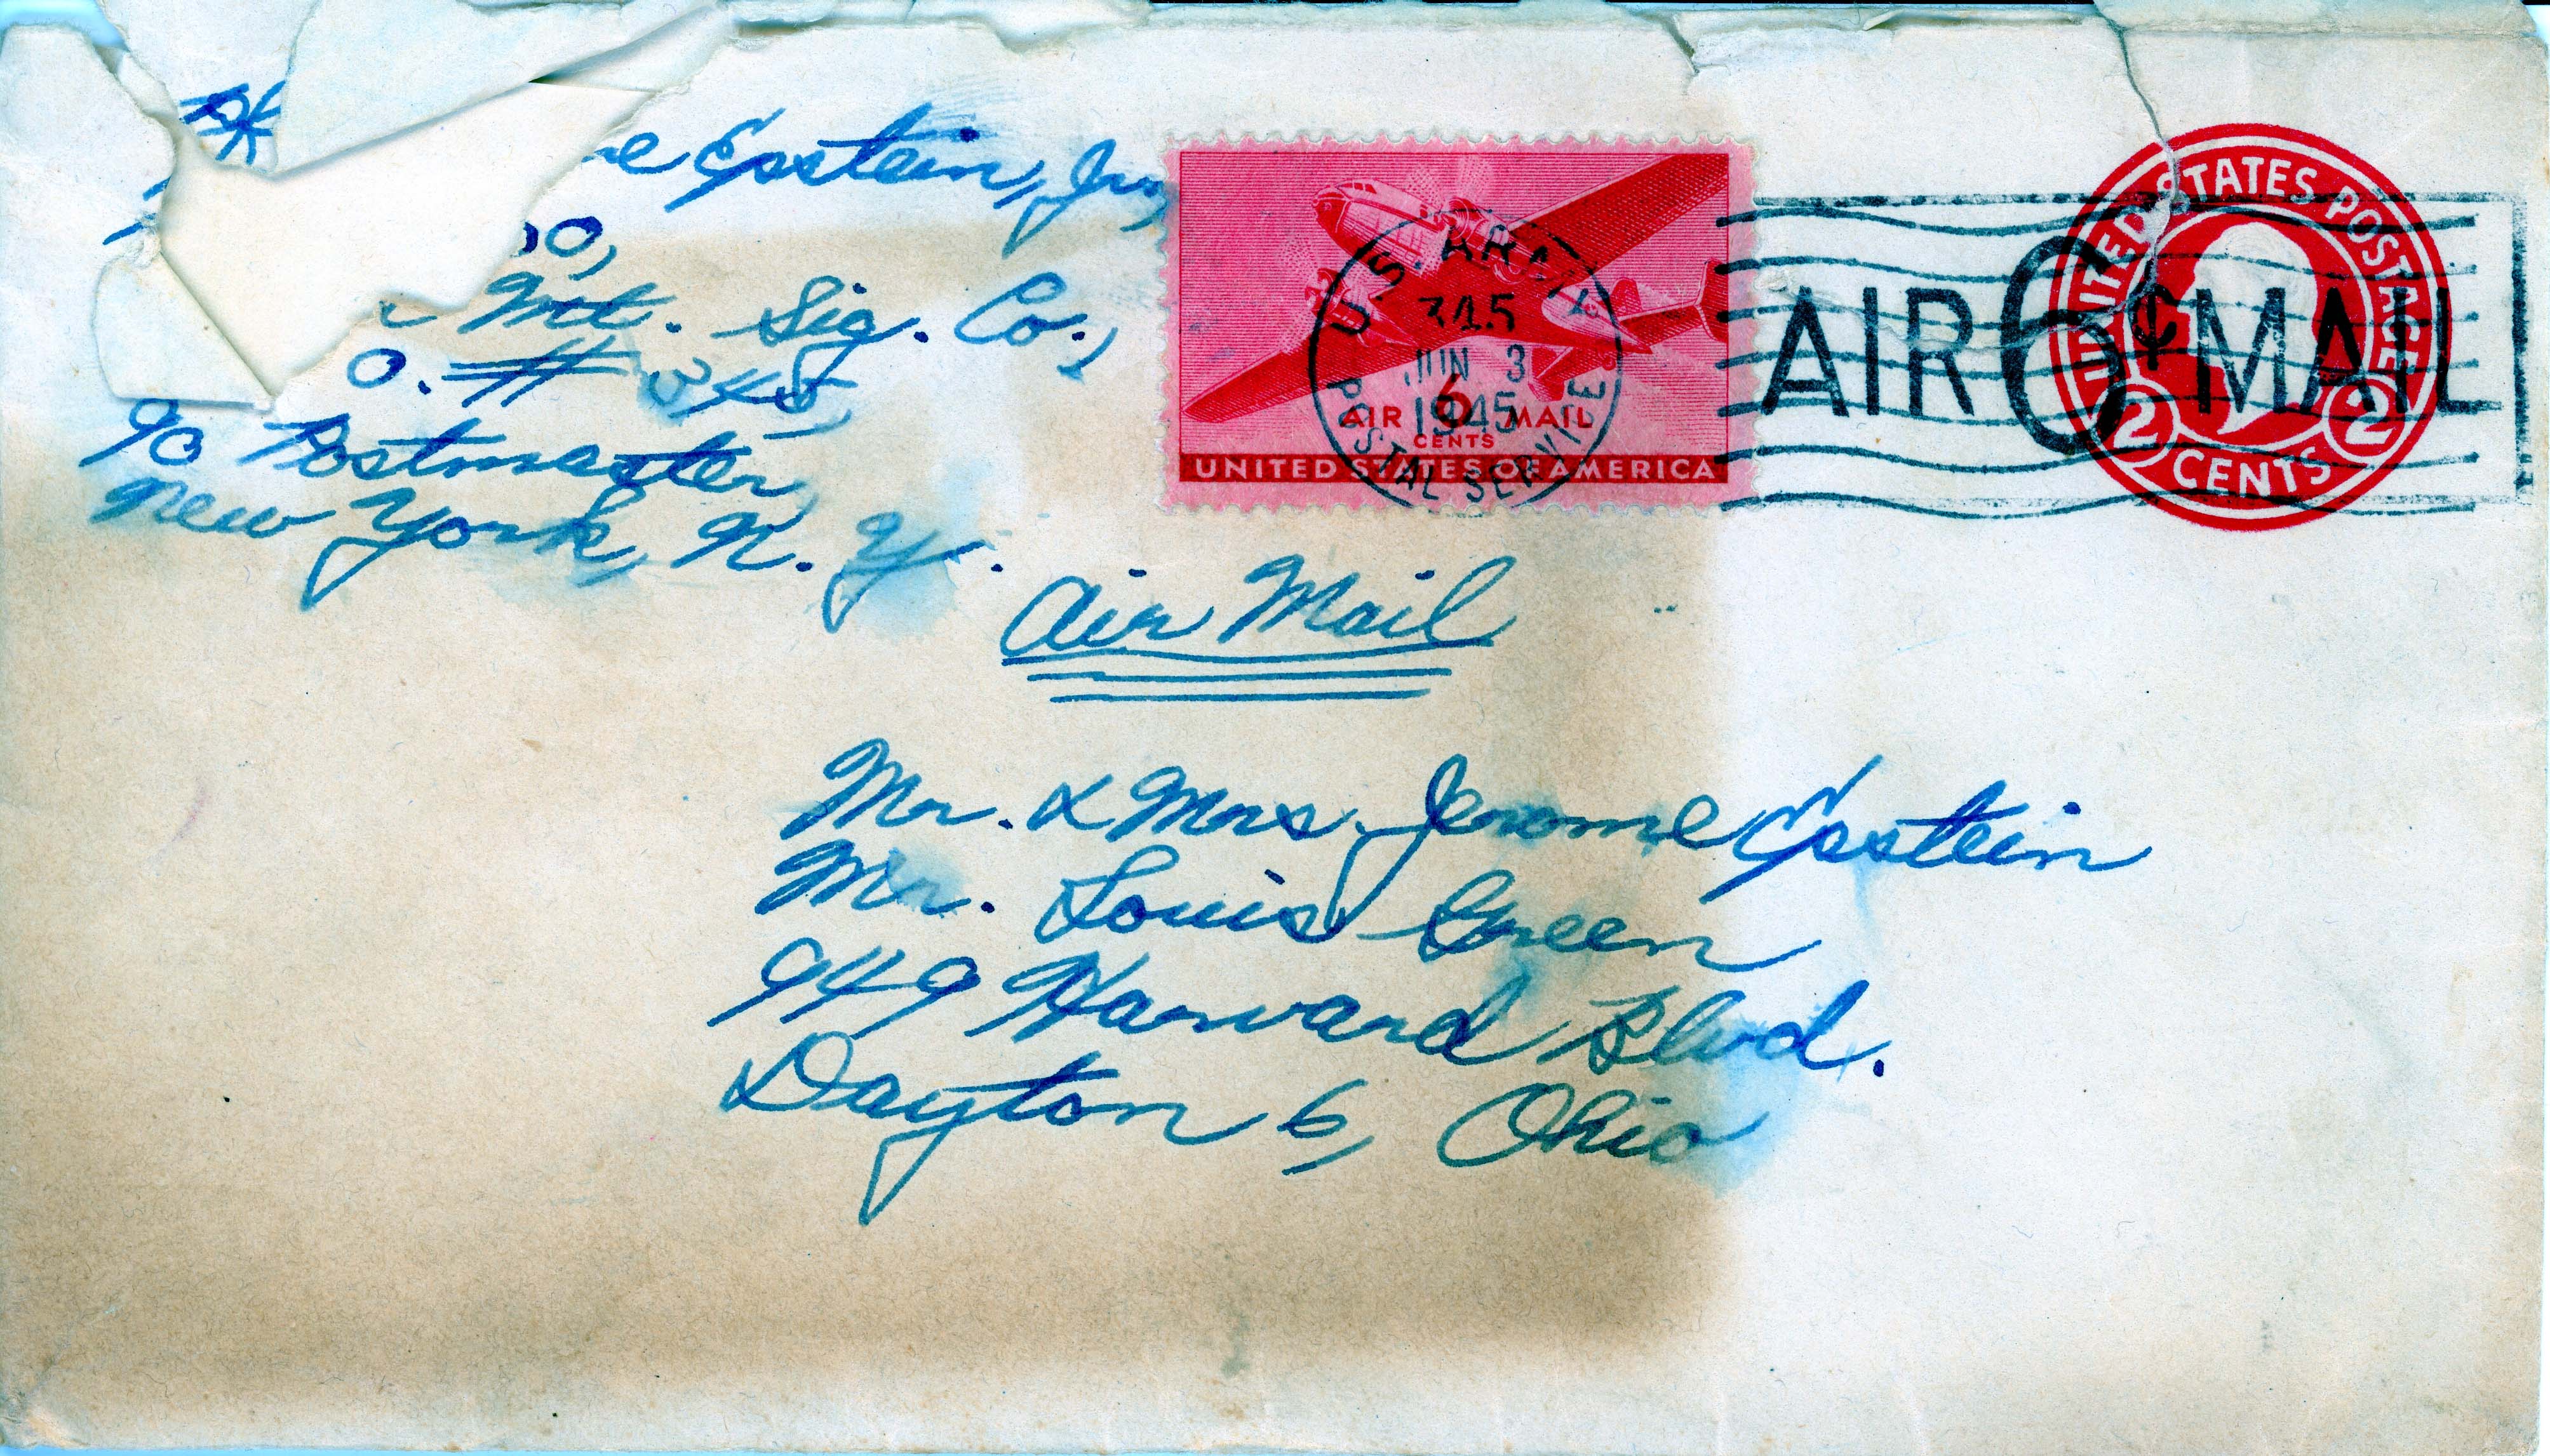 Epstein, Jr.,
Mt. Sig. Co.,
O. # 545,
c/o Postmaster,
New York, N. Y.
U.S. ARMY
345
JUN 3
1945
POSTAL SERVICE
AIR 6 MAIL
CENTS
UNITED STATES OF AMERICA
AIR 6¢ MAIL
UNITED STATES POSTAGE
2 CENTS 2
Air Mail
Mr. & Mrs. Jerome Epstein
Mr. Louis Green
949 Harvard Blvd.
Dayton 6, Ohio